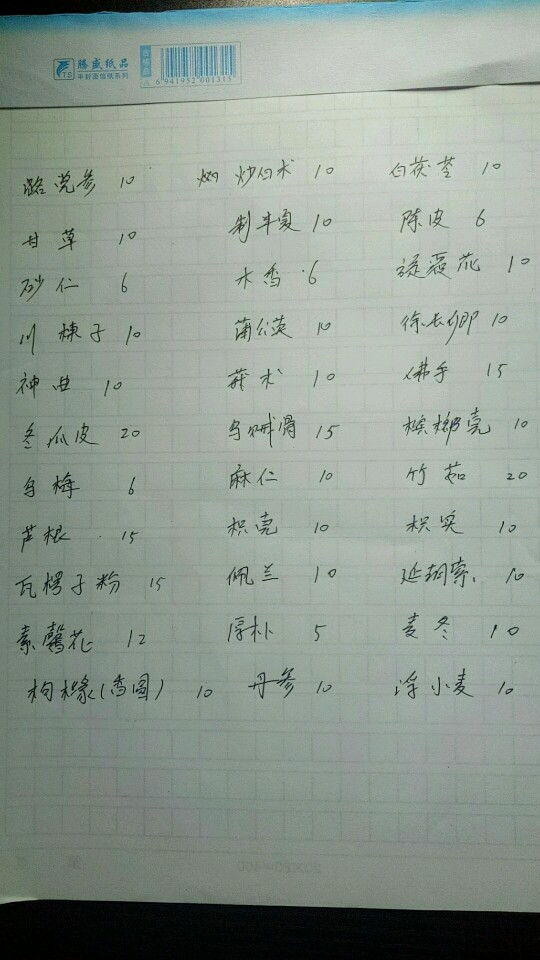 腾盛纸品
TS 半封面信纸系列
合格品
6 941952 001313
潞党参 10 炒白术 10 白茯苓 10
甘草 10 制半夏 10 陈皮 6
砂仁 6 木香 6 绿萼花 10
川楝子 10 蒲公英 10 徐长卿 10
神曲 10 莪术 10 佛手 15
冬瓜皮 20 乌贼骨 15 槟榔壳 10
乌梅 6 麻仁 10 竹茹 20
芦根 15 枳壳 10 枳实 10
瓦楞子粉 15 佩兰 10 延胡索 10
素馨花 12 厚朴 5 麦冬 10
枸橼(香圆) 10 丹参 10 浮小麦 10